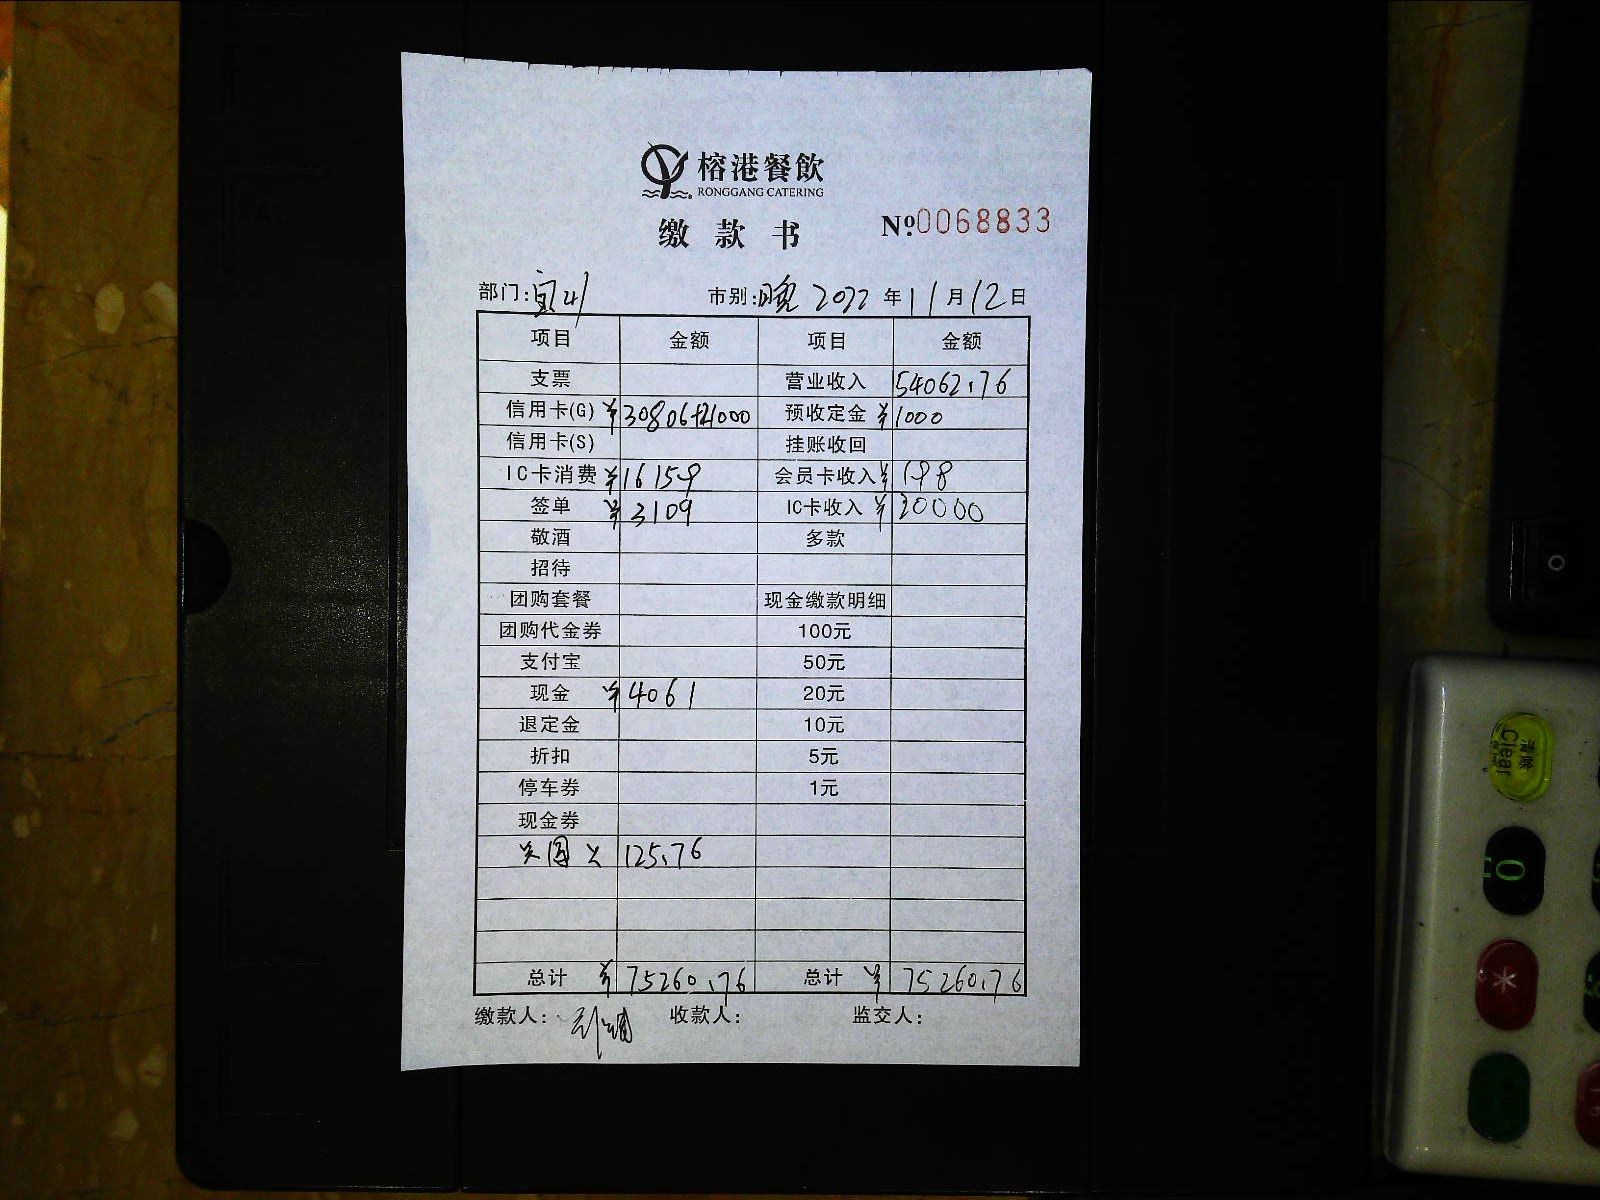 榕港餐飲
RONGGANG CATERING
缴款书
Nº.0068833
部门: 市别:晚 2022年11月12日
项目 金额 项目 金额
支票 营业收入 54062.76
信用卡(G) ¥30806+21000 预收定金 ¥1000
信用卡(S) 挂账收回
IC卡消费 ¥16159 会员卡收入 ¥198
签单 ¥3109 IC卡收入 ¥20000
敬酒 多款
招待
团购套餐 现金缴款明细
团购代金券 100元
支付宝 50元
现金 ¥4061 20元
退定金 10元
折扣 5元
停车券 1元
现金券
125.76
总计 ¥75260.76 总计 ¥75260.76
缴款人: 收款人: 监交人:
清除
Clear
0
*